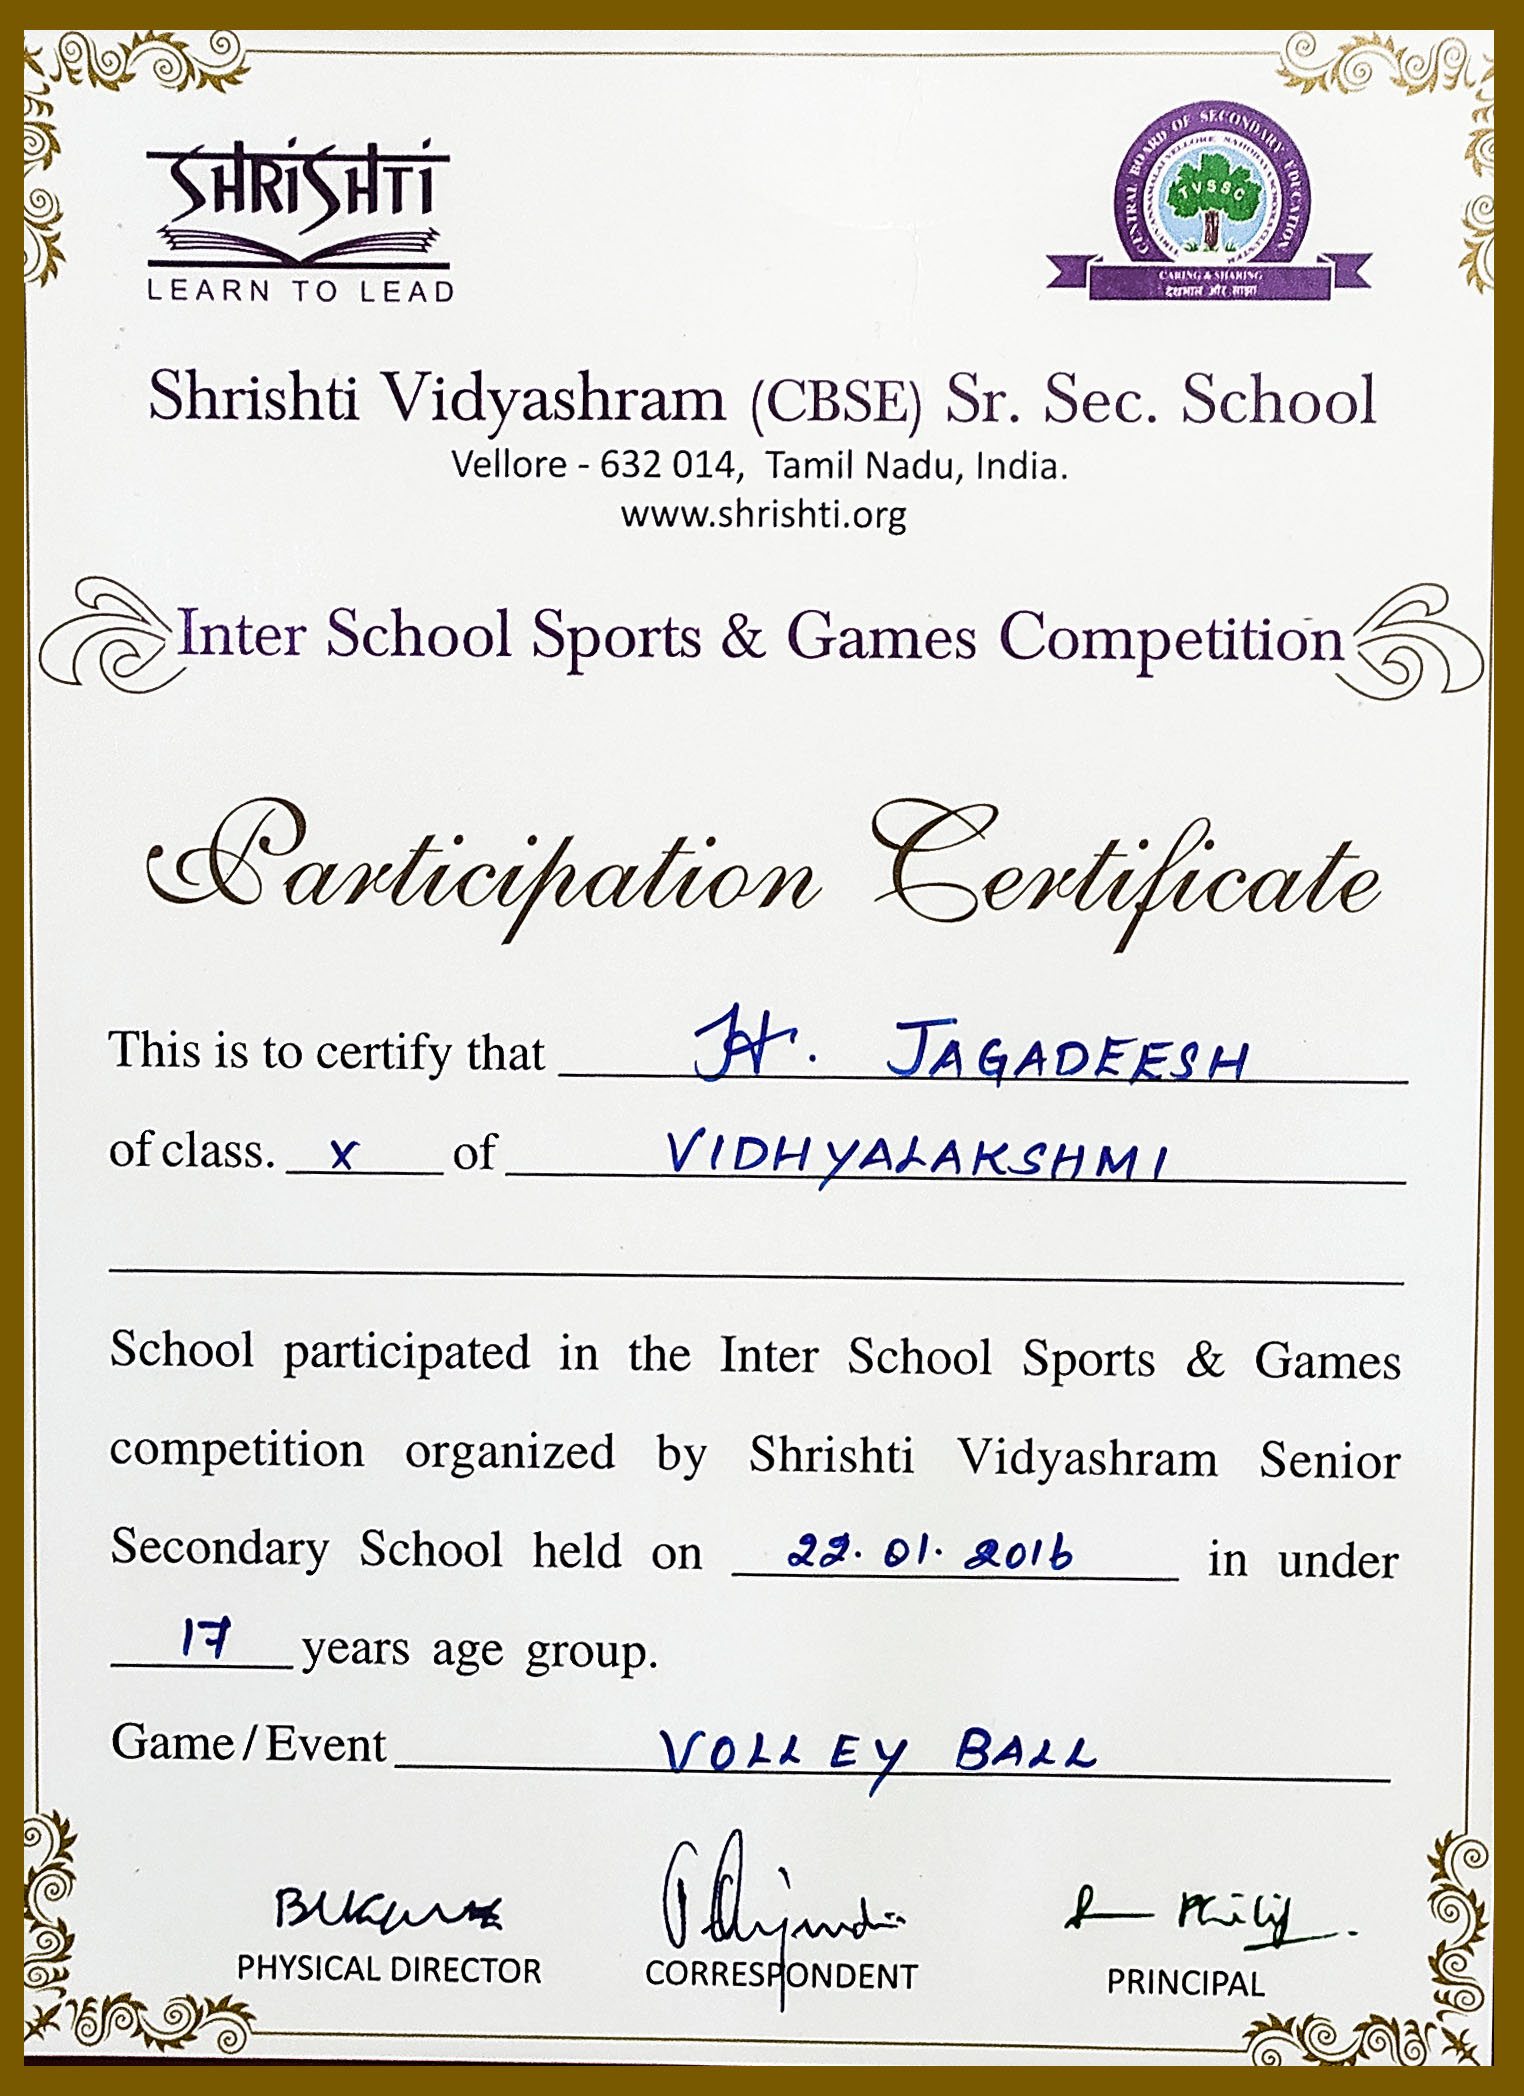 SHRiSHTi
LEARN TO LEAD
CENTRAL BOARD OF SECONDARY EDUCATION
TVSSC
CARING & SHARING
देखभाल और साझा
Shrishti Vidyashram (CBSE) Sr. Sec. School
Vellore - 632 014, Tamil Nadu, India.
www.shrishti.org
Inter School Sports & Games Competition
Participation Certificate
This is to certify that H. JAGADEESH
of class. X of VIDHYALAKSHMI
School participated in the Inter School Sports & Games
competition organized by Shrishti Vidyashram Senior
Secondary School held on 22.01.2016 in under
17 years age group.
Game / Event VOLLEY BALL
PHYSICAL DIRECTOR CORRESPONDENT PRINCIPAL